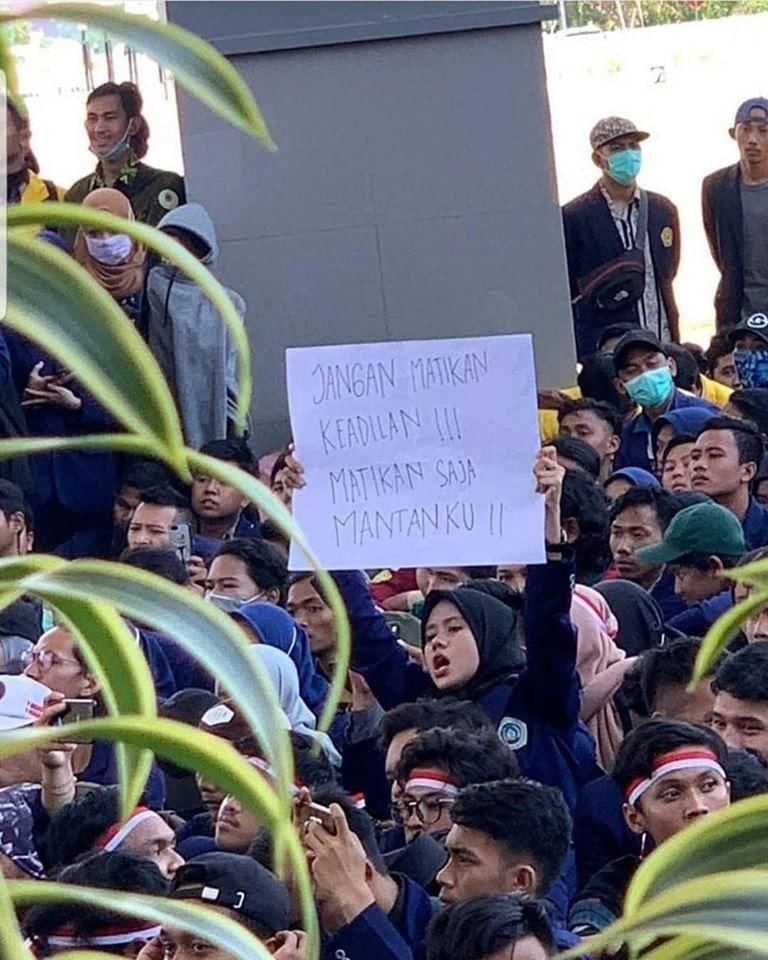 JANGAN MATIKAN
KEADILAN !!!
MATIKAN SAJA
MANTANKU !!